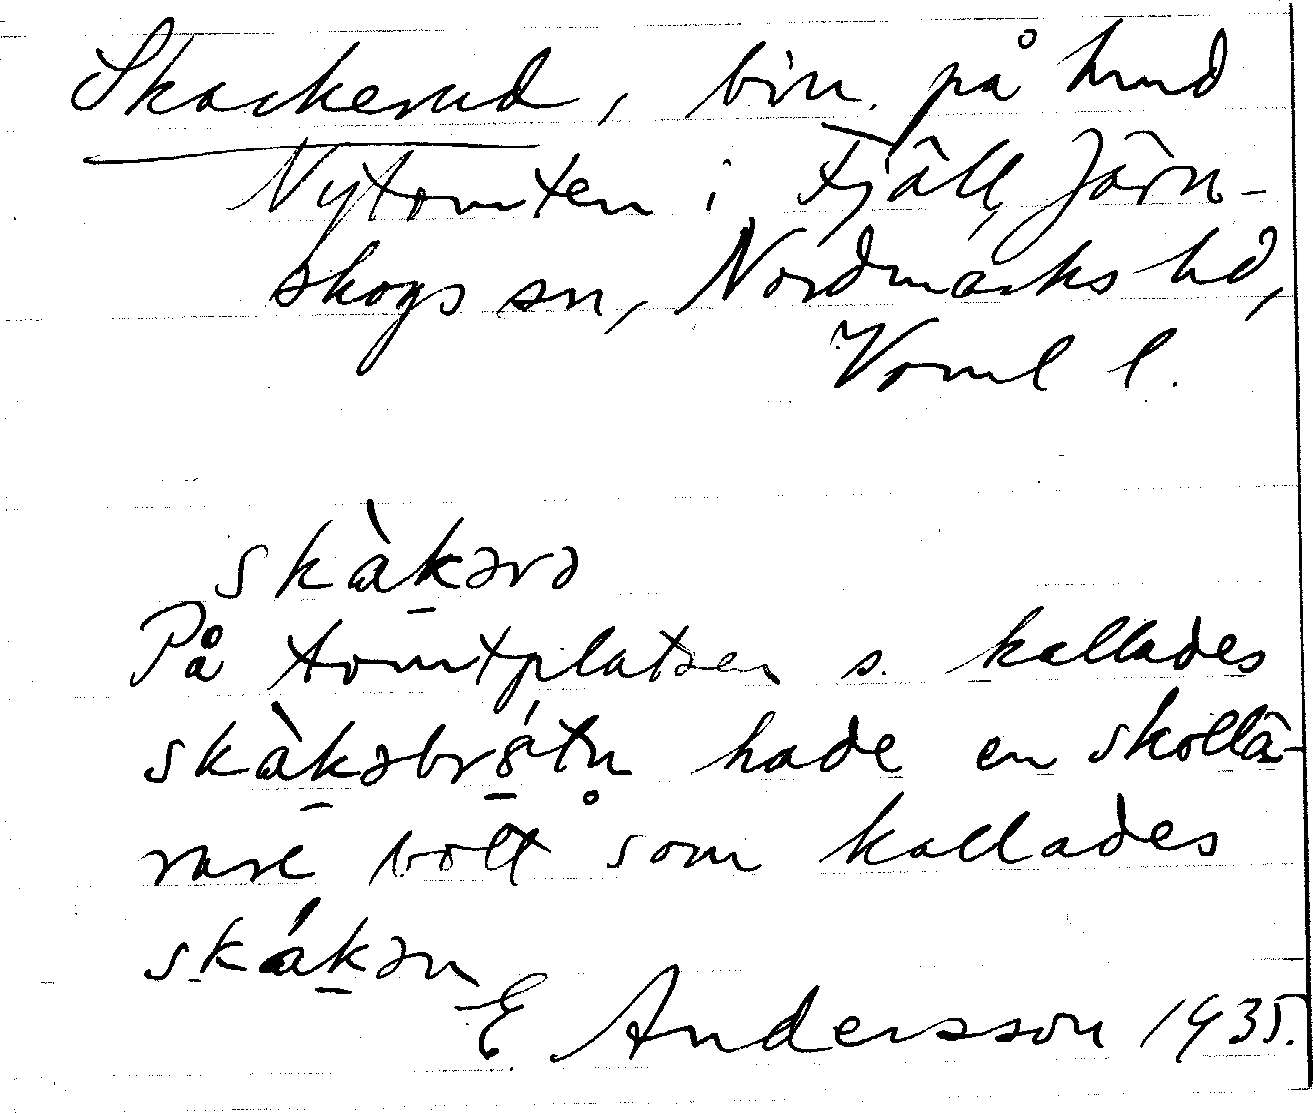 Skackerud, bin. på hmd
Nytomten i Fjäll, Järn-
skogs sn, Nordmarks hd,
Vrml l.
skàk̠ərə
På tomtplatsen s. kallades
skàk̠əbrǿtn hade en skollä-
rare bott som kallades
skák̠ən
E Andersson 1935.